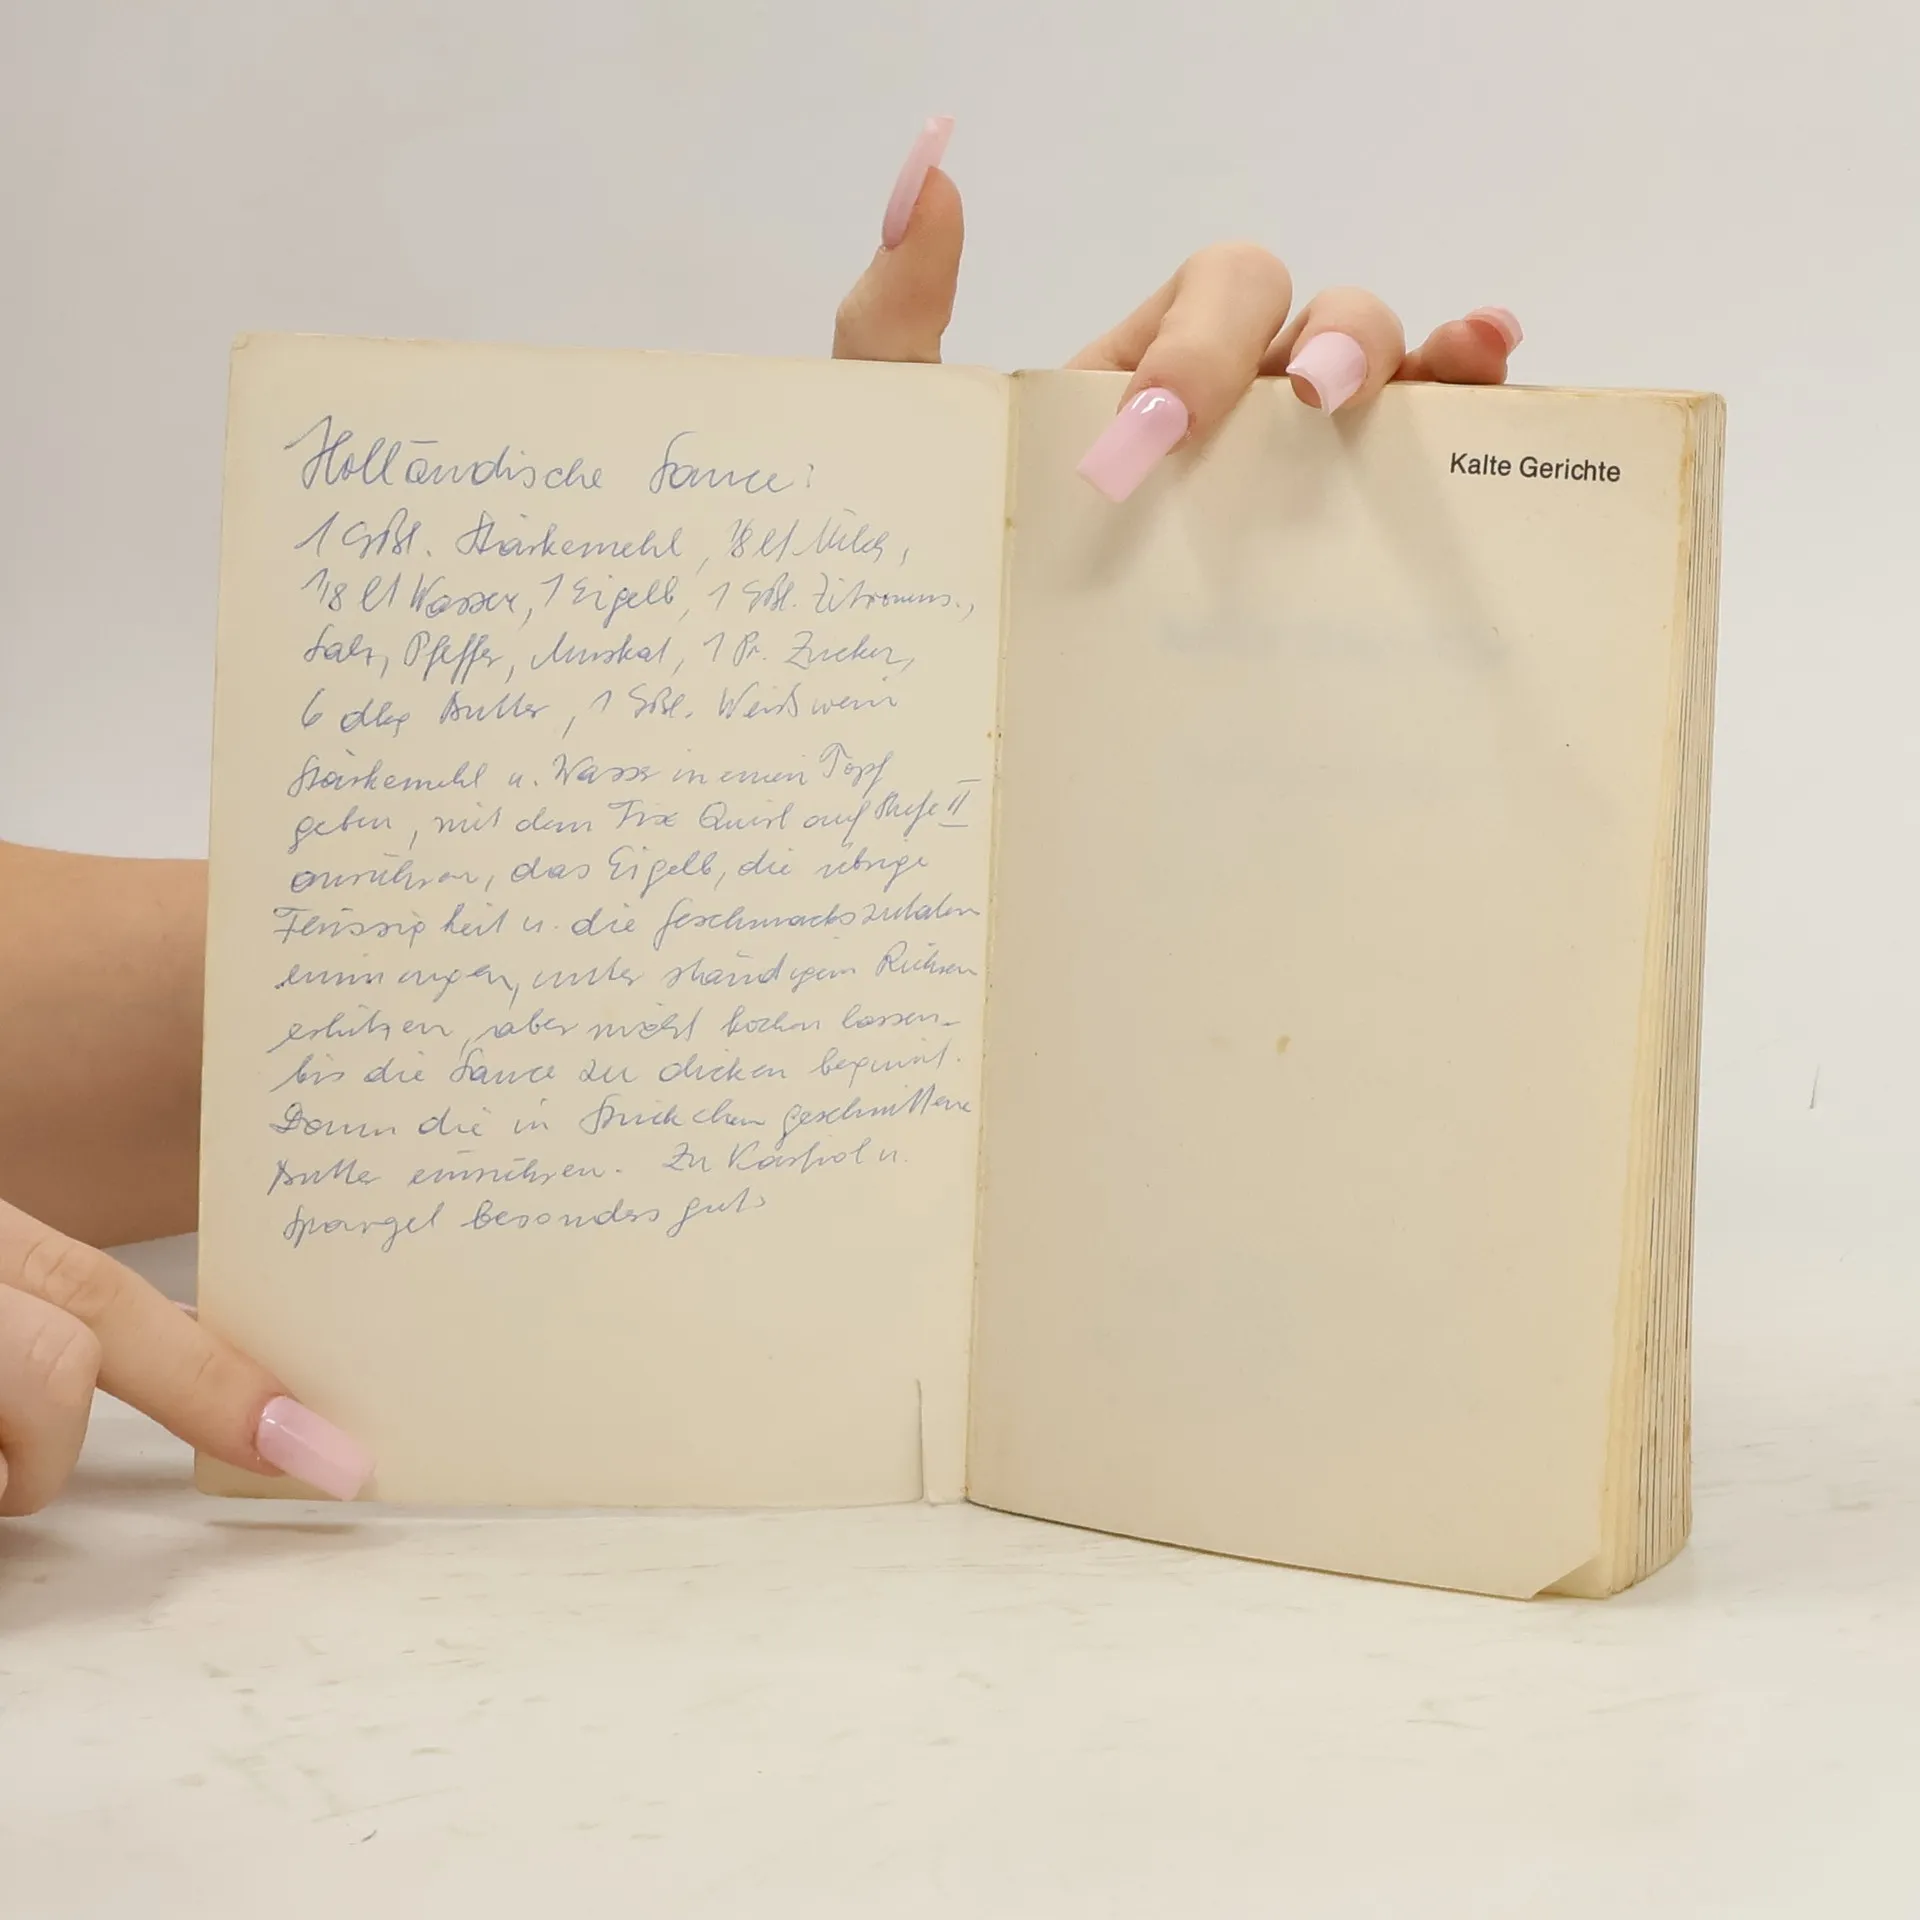 Holländische Sauce:
1 Eßl. Stärkemehl, 1/8 lt Milch,
1/8 lt Wasser, 1 Eigelb, 1 Eßl. Zitronens.,
Salz, Pfeffer, Muskat, 1 Pr. Zucker,
6 dkg Butter, 1 Eßl. Weißwein
Stärkemehl u. Wasser in einen Topf
geben, mit dem Fix Quirl auf Stufe II
anrühren, das Eigelb, die übrige
Flüssigkeit u. die Geschmackszutaten
hinzugeben, unter ständigem Rühren
erhitzen, aber nicht kochen lassen -
bis die Sauce zu dicken beginnt.
Dann die in Stückchen geschnittene
Butter einrühren. Zu Karfiol u.
Spargel besonders gut
Kalte Gerichte